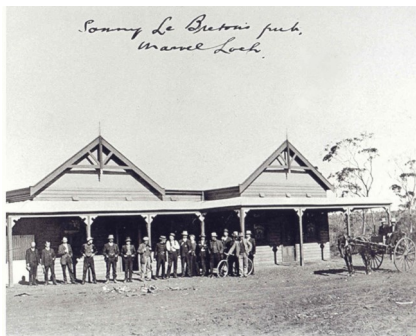 Sonny Le Breton's pub,
Marvel Loch.